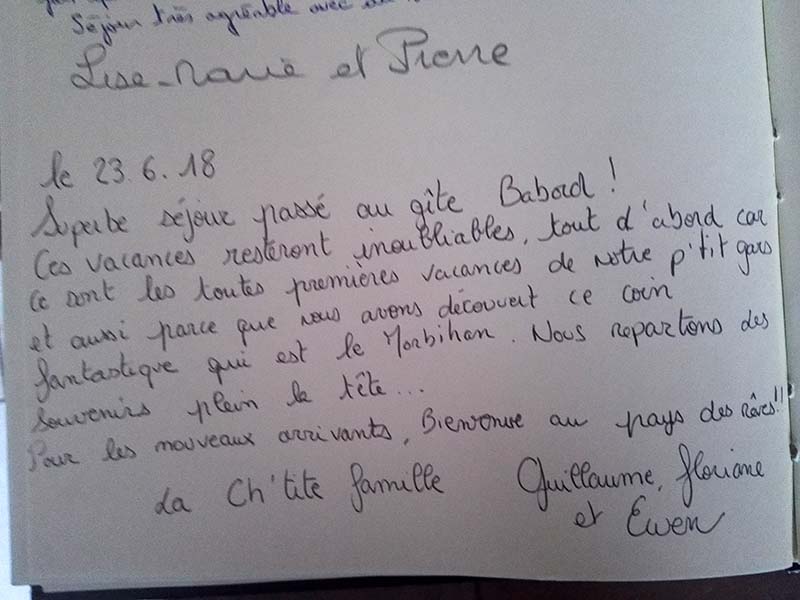 Séjour très agréable avec
Lise-Marie et Pierre
le 23.6.18
Superbe séjour passé au gîte Babord !
Ces vacances resteront inoubliables, tout d'abord car
ce sont les toutes premières vacances de notre p'tit gars
et aussi parce que nous avons découvert ce coin
fantastique qui est le Morbihan. Nous repartons des
souvenirs plein la tête...
Pour les nouveaux arrivants, Bienvenue au pays des rêves!!
La Ch'tite famille Guillaume, Floriane
et Ewen